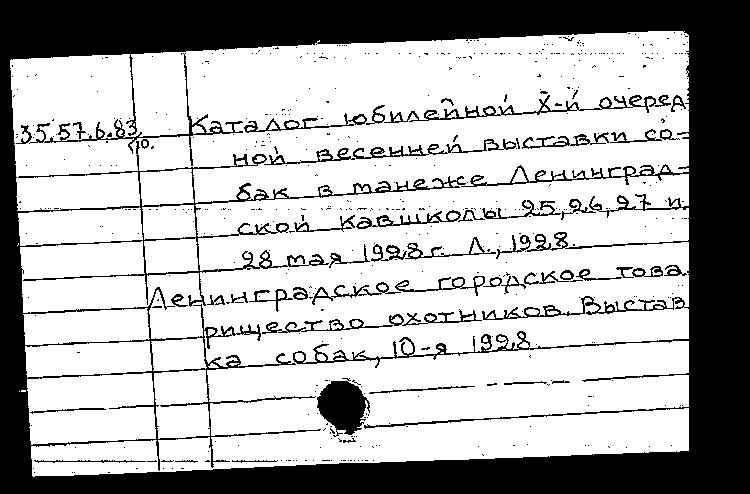 35.57.6.83 Каталог юбилейной X-й очеред
10. ной весенней выставки со-
бак в манеже Ленинград-
ской кавшколы 25, 26, 27 и
28 мая 1928 г. Л., 1928.
Ленинградское городское това
рищество охотников. Выстав
ка собак, 10-я. 1928.